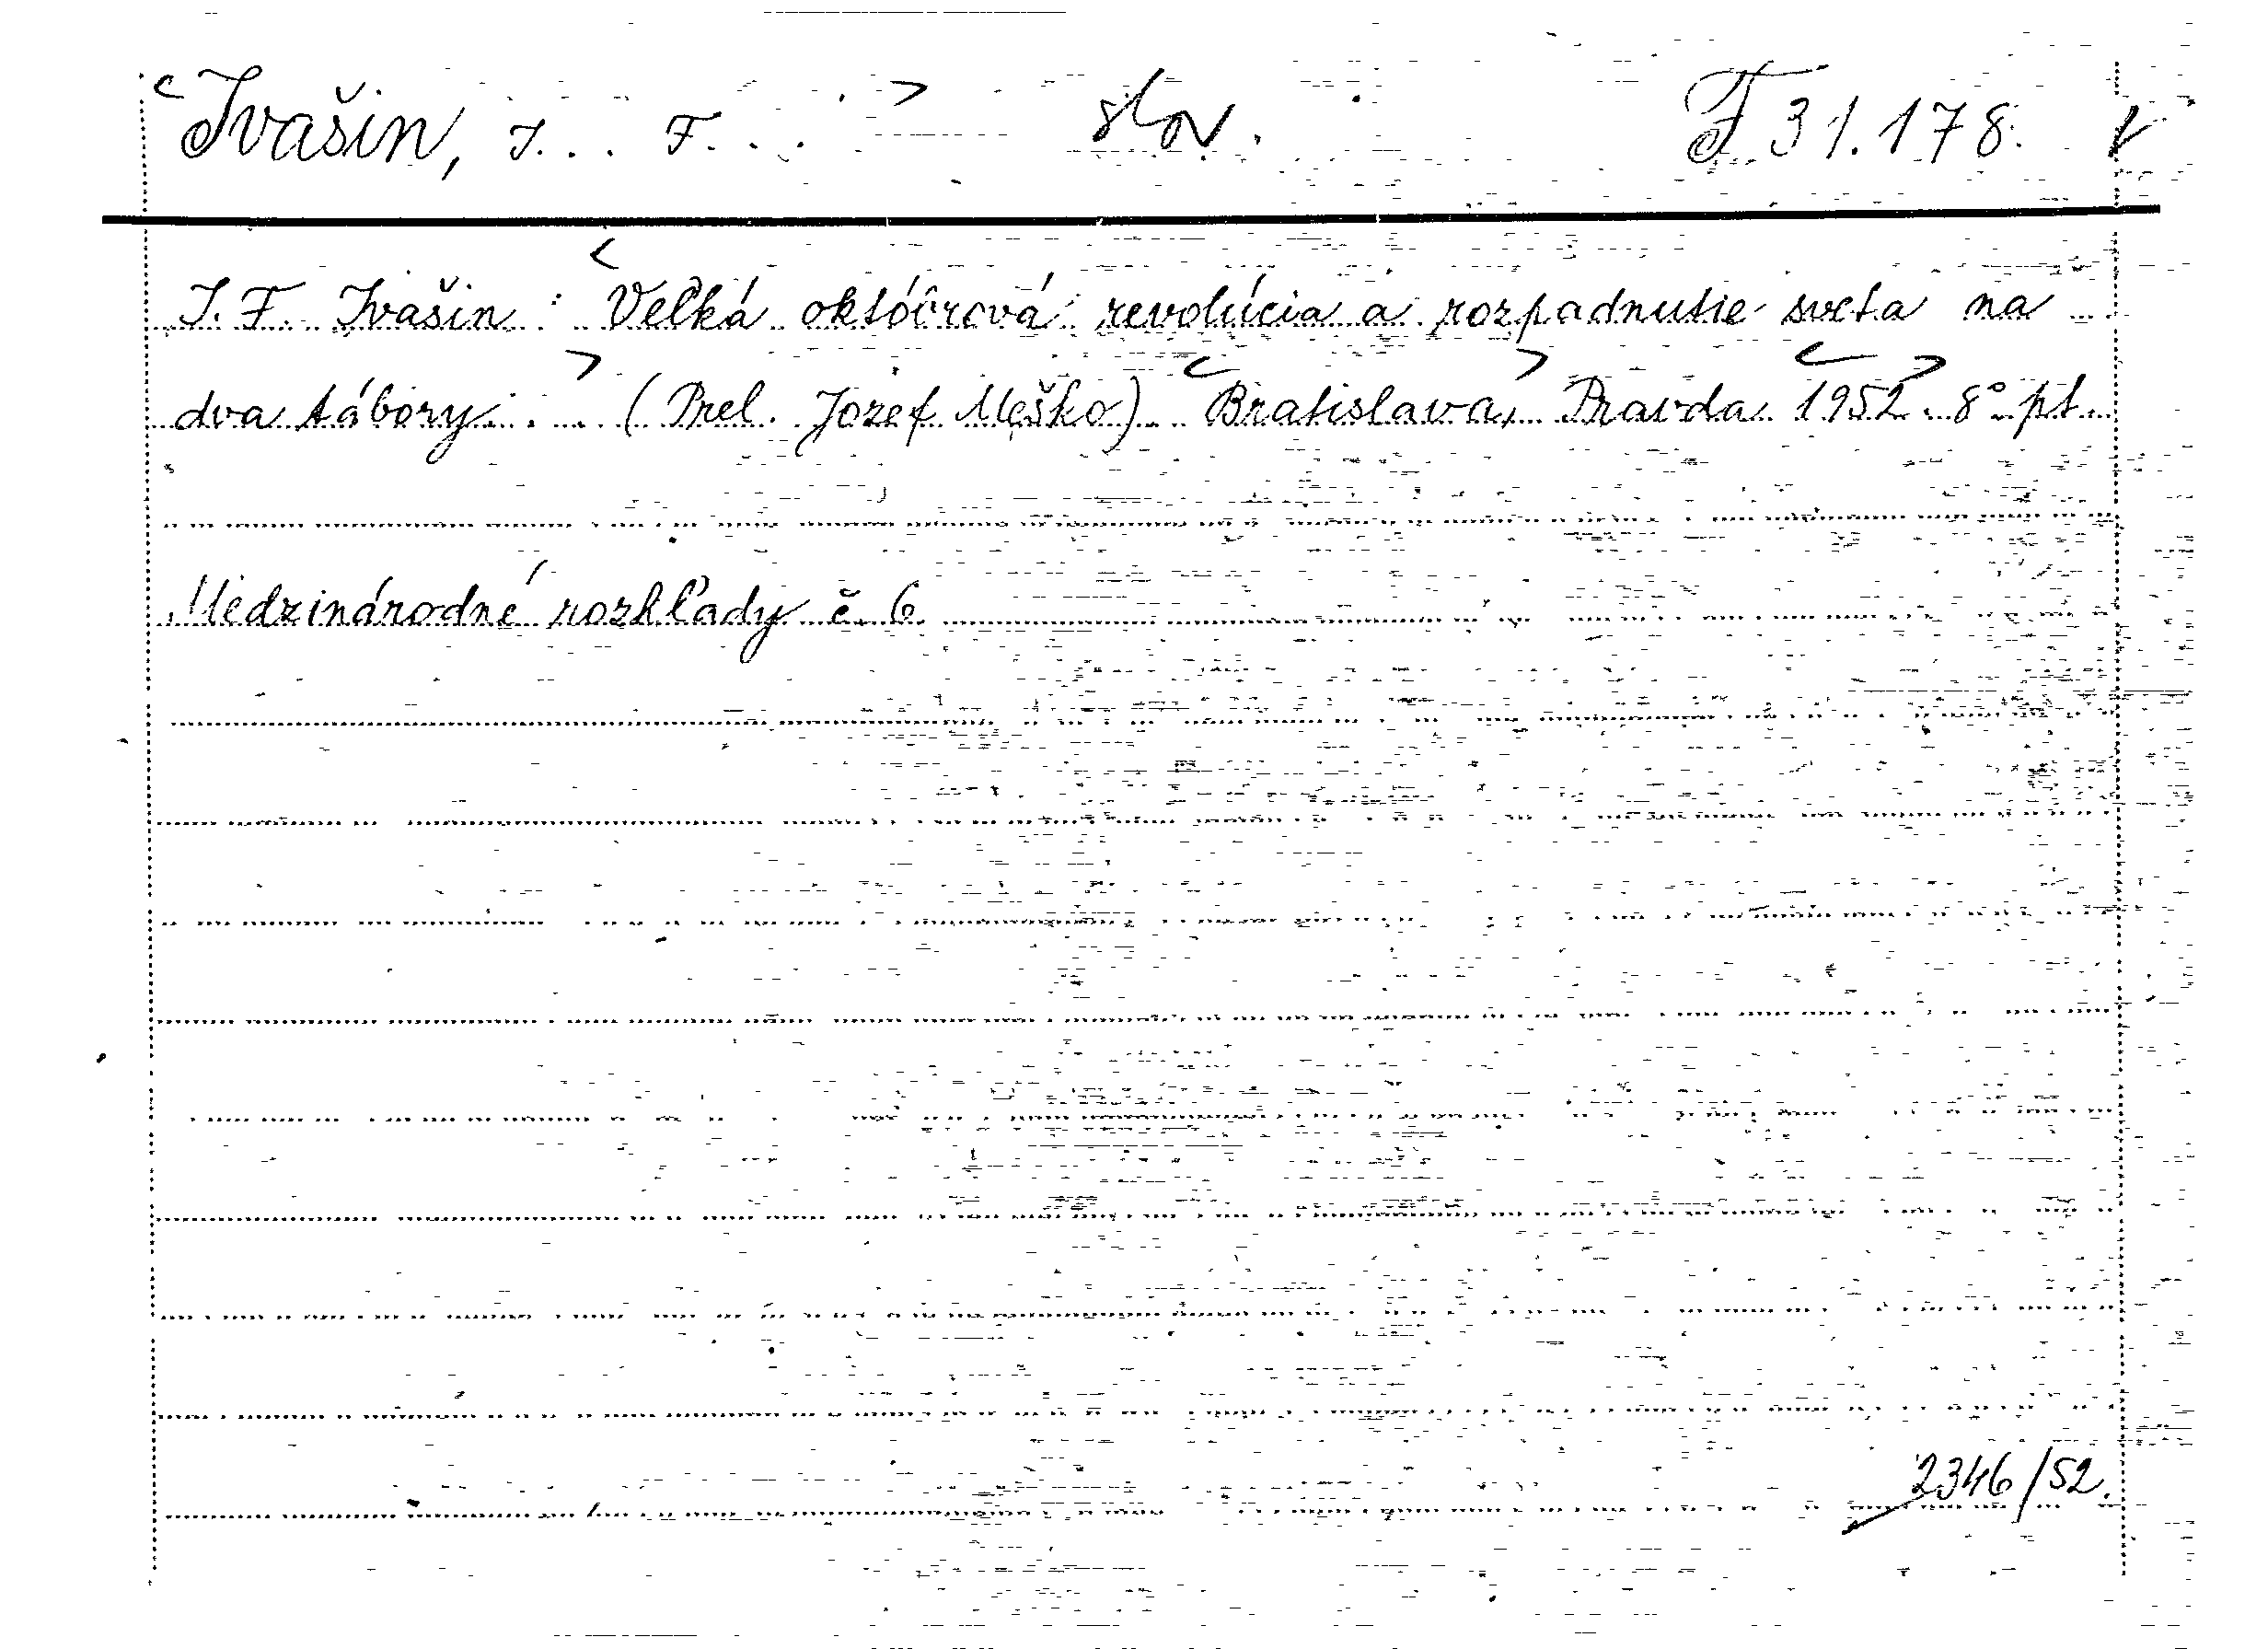 <Ivašin, I... F...> slov. F 31.178. v
I. F. Ivašin: <Veľká októbrová revolúcia a rozpadnutie sveta na
dva tábory...> (Prel. Jozef Meško). <Bratislava,> Pravda <1952>. 8° pt.
Medzinárodné rozhľady č. 6
2346/52.